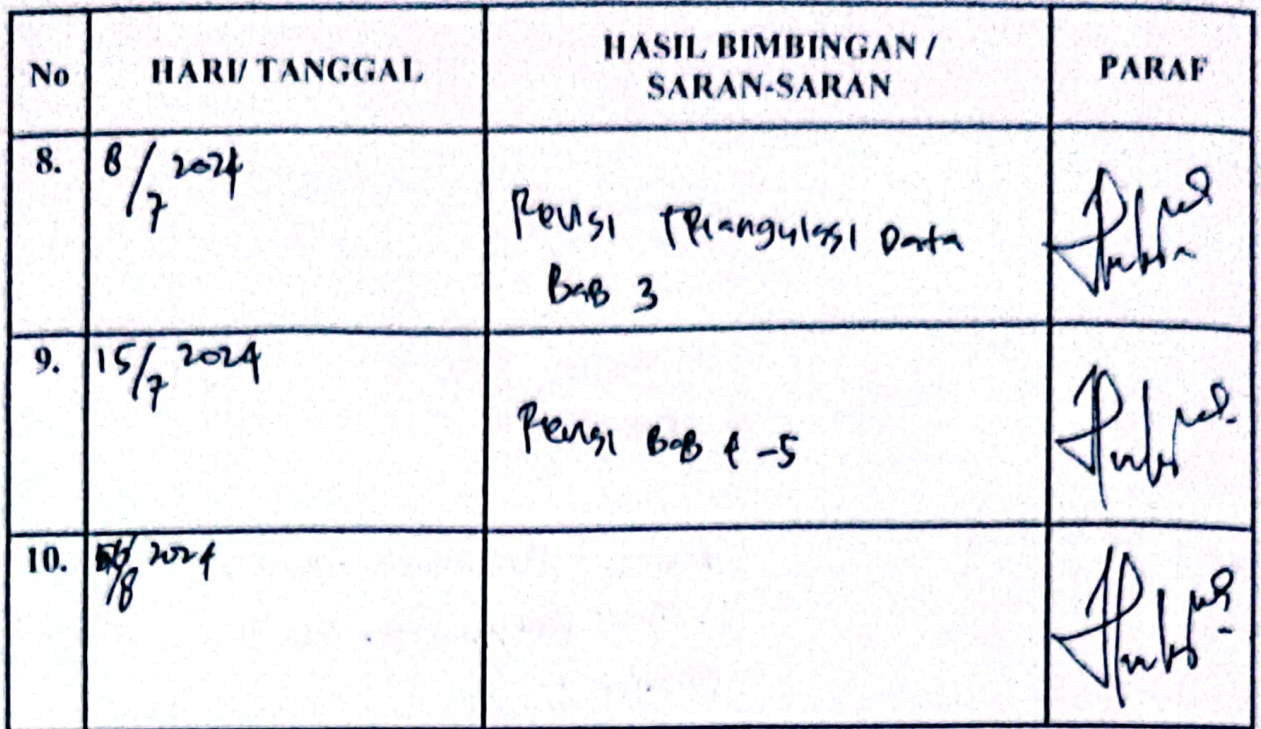 No HARI/ TANGGAL HASIL BIMBINGAN / SARAN-SARAN PARAF
8. 8/7 2024 Revisi Triangulasi Data
Bab 3
9. 15/7 2024 Revisi Bab 4-5
10. /8 2024